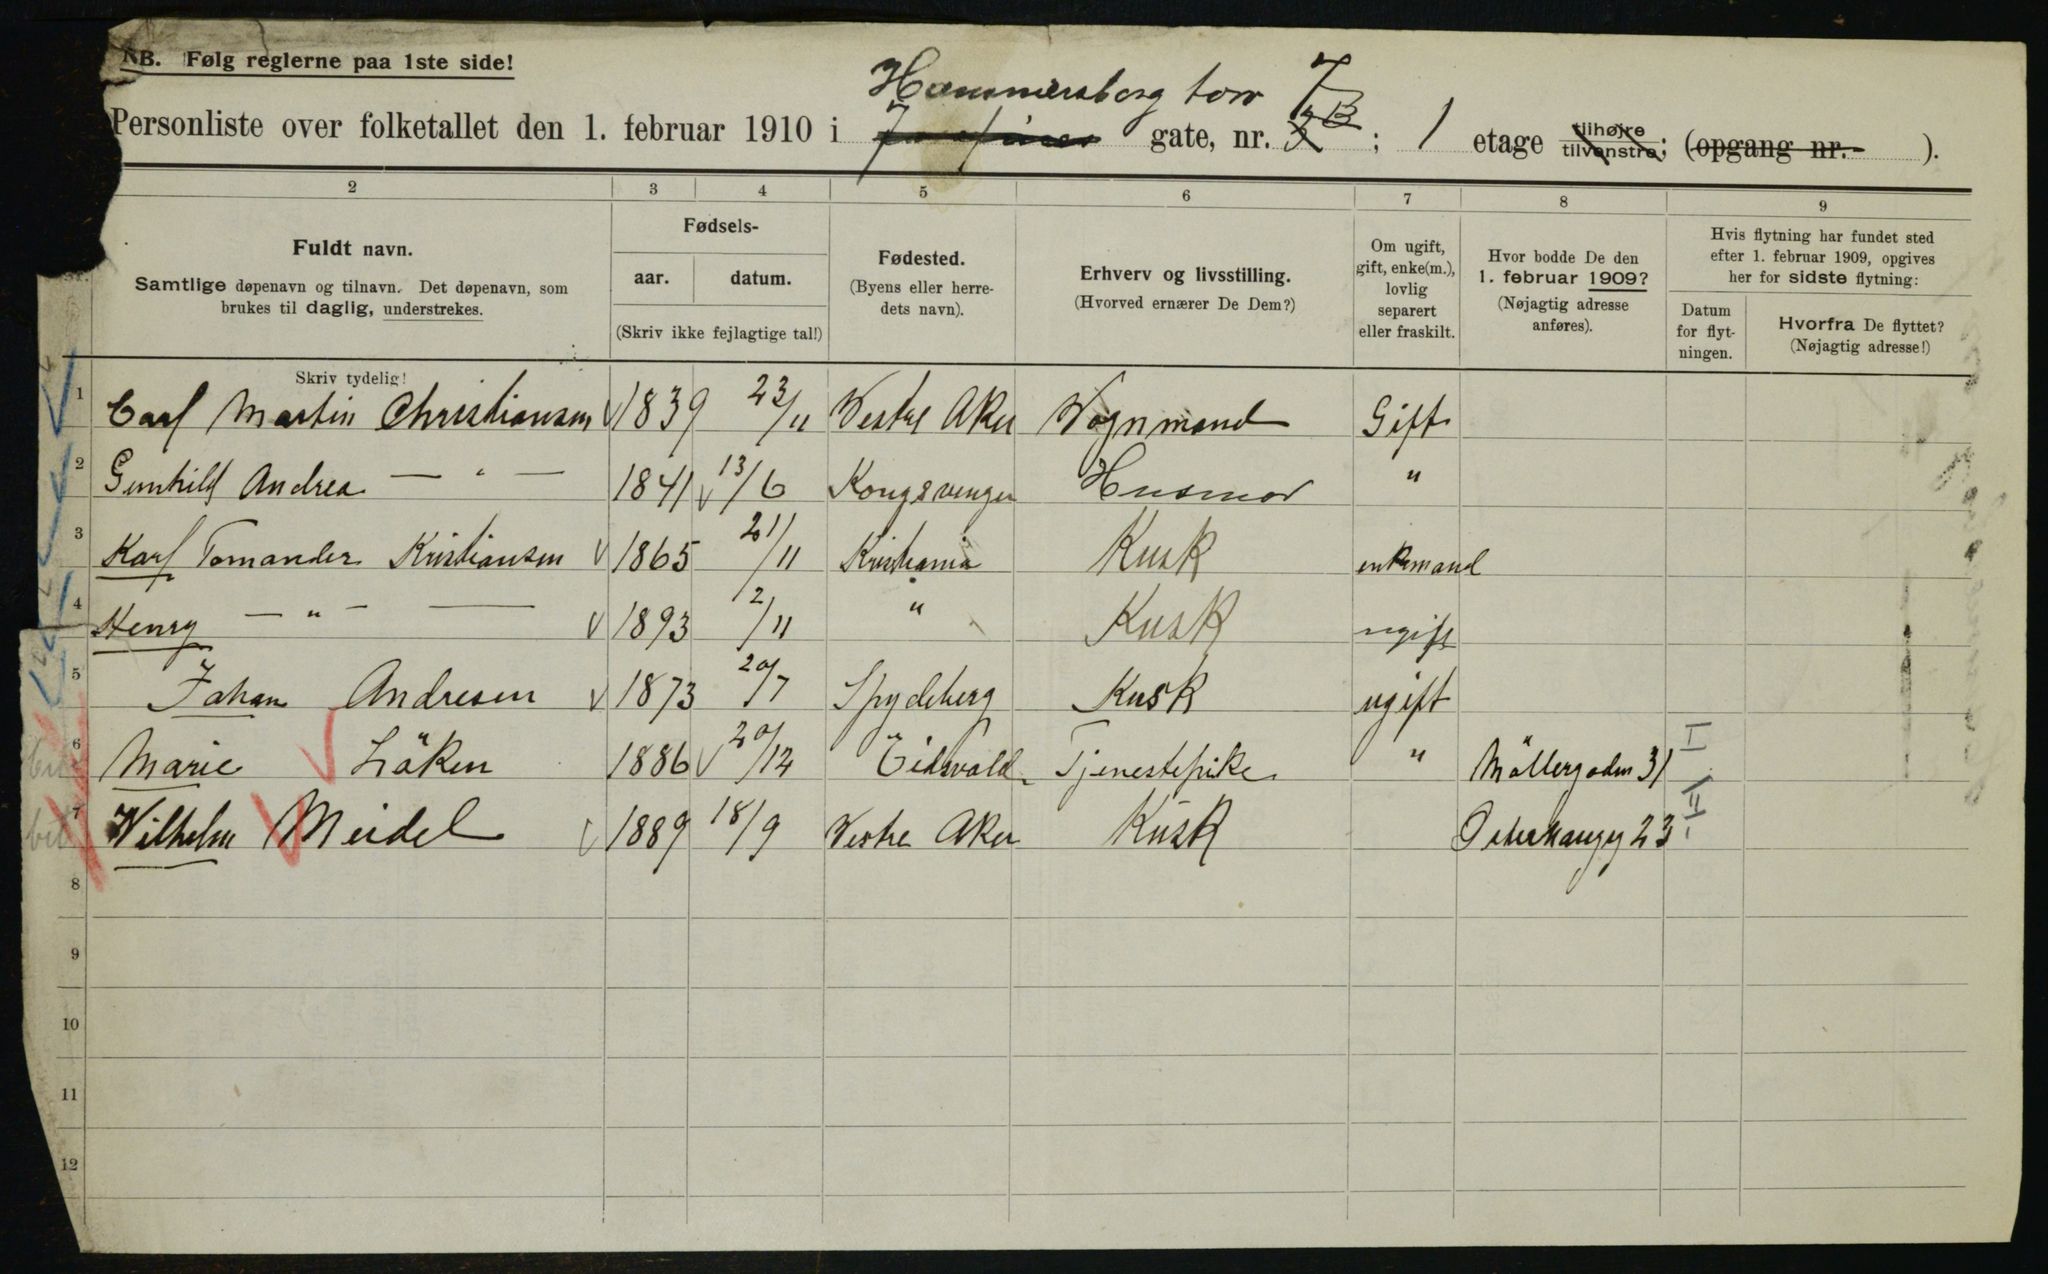 NB. Følg reglerne paa 1ste side!
Hammersborg torv 7
Personliste over folketallet den 1. februar 1910 i gate, nr. 3 B; 1 etage tilhøjre tilvenstre; (opgang nr. ).
2 3 4 5 6 7 8 9
Nr.
Fuldt navn.
Samtlige døpenavn og tilnavn. Det døpenavn, som
brukes til daglig, understrekes.
Fødsels-
aar. datum.
(Skriv ikke fejlagtige tal!)
Fødested.
(Byens eller herre-
dets navn).
Erhverv og livsstilling.
(Hvorved ernærer De Dem?)
Om ugift,
gift, enke(m.),
lovlig
separert
eller fraskilt.
Hvor bodde De den
1. februar 1909?
(Nøjagtig adresse
anføres).
Hvis flytning har fundet sted
efter 1. februar 1909, opgives
her for sidste flytning:
Datum
for flyt-
ningen.
Hvorfra De flyttet?
(Nøjagtig adresse!)
Skriv tydelig!
1 Carl Martin Christiansen 1839 23/11 Vestre Aker Vognmand Gift
2 Gunhild Andrea — " — 1841 13/6 Kongsvinger Husmor "
3 Karl Tomander Kristiansen 1865 21/11 Kristiania Kusk enkemand
4 Henry — " — — 1893 2/11 " Kusk ugift
5 Johan Andresen 1873 20/7 Spydeberg Kusk ugift
6 Marie Löken 1886 20/12 Eidsvold Tjenestepike " Möllergaden 31 II
7 Wilhelm Meidel 1889 18/9 Vestre Aker Kusk Osterhausg 23 II
8
9
10
11
12